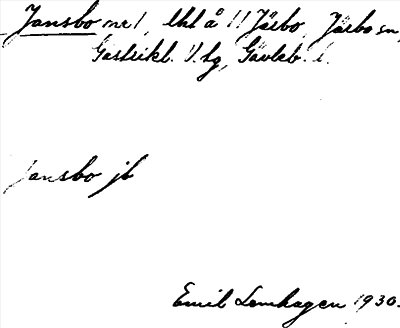 Jansbo nr 1, lht å 11 Järbo, Järbo sn,
Gästrikl. V. tg, Gävleb. l.
Jansbo jb
Emil Lomhagen 1930.